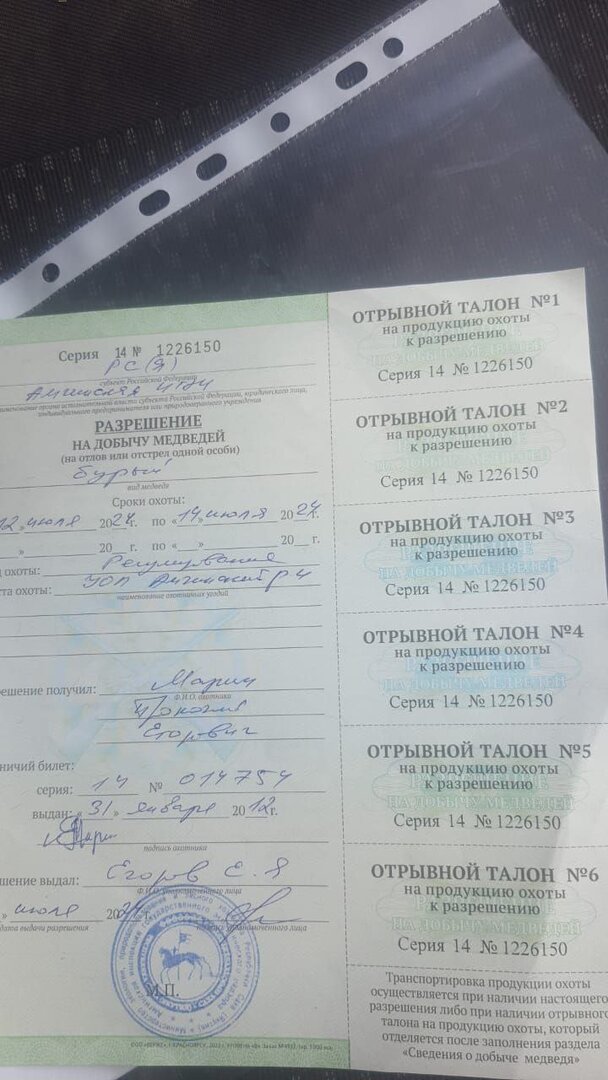 Серия 14 № 1226150
РС(Я)
субъект Российской Федерации
Амгинская
наименование органа исполнительной власти субъекта Российской Федерации, юридического лица,
индивидуального предпринимателя или природоохранного учреждения
РАЗРЕШЕНИЕ
НА ДОБЫЧУ МЕДВЕДЕЙ
(на отлов или отстрел одной особи)
бурый
вид медведя
Сроки охоты:
12 » июля 2024г. по «14» июля 2024г.
» 20 г. по « » 20 г.
охоты: Регулирование
та охоты: УОП Амгинский р-н
наименование охотничьих угодий
решение получил: Марин
Ф.И.О. охотника
Прокопий
Егорович
ничий билет:
серия: 14 № 014754
выдан: «31» января 2012г.
подпись охотника
шение выдал: Егоров Е.Я
Ф.И.О. уполномоченного лица
» июля 2024
дата выдачи разрешения
подпись уполномоченного лица
М.П.
ОТРЫВНОЙ ТАЛОН №1
на продукцию охоты
к разрешению
Серия 14 № 1226150
ОТРЫВНОЙ ТАЛОН №2
на продукцию охоты
к разрешению
Серия 14 № 1226150
ОТРЫВНОЙ ТАЛОН №3
на продукцию охоты
к разрешению
Серия 14 № 1226150
ОТРЫВНОЙ ТАЛОН №4
на продукцию охоты
к разрешению
Серия 14 № 1226150
ОТРЫВНОЙ ТАЛОН №5
на продукцию охоты
к разрешению
Серия 14 № 1226150
ОТРЫВНОЙ ТАЛОН №6
на продукцию охоты
к разрешению
Серия 14 № 1226150
Транспортировка продукции охоты
осуществляется при наличии настоящего
разрешения либо при наличии отрывного
талона на продукцию охоты, который
отделяется после заполнения раздела
«Сведения о добыче медведя»